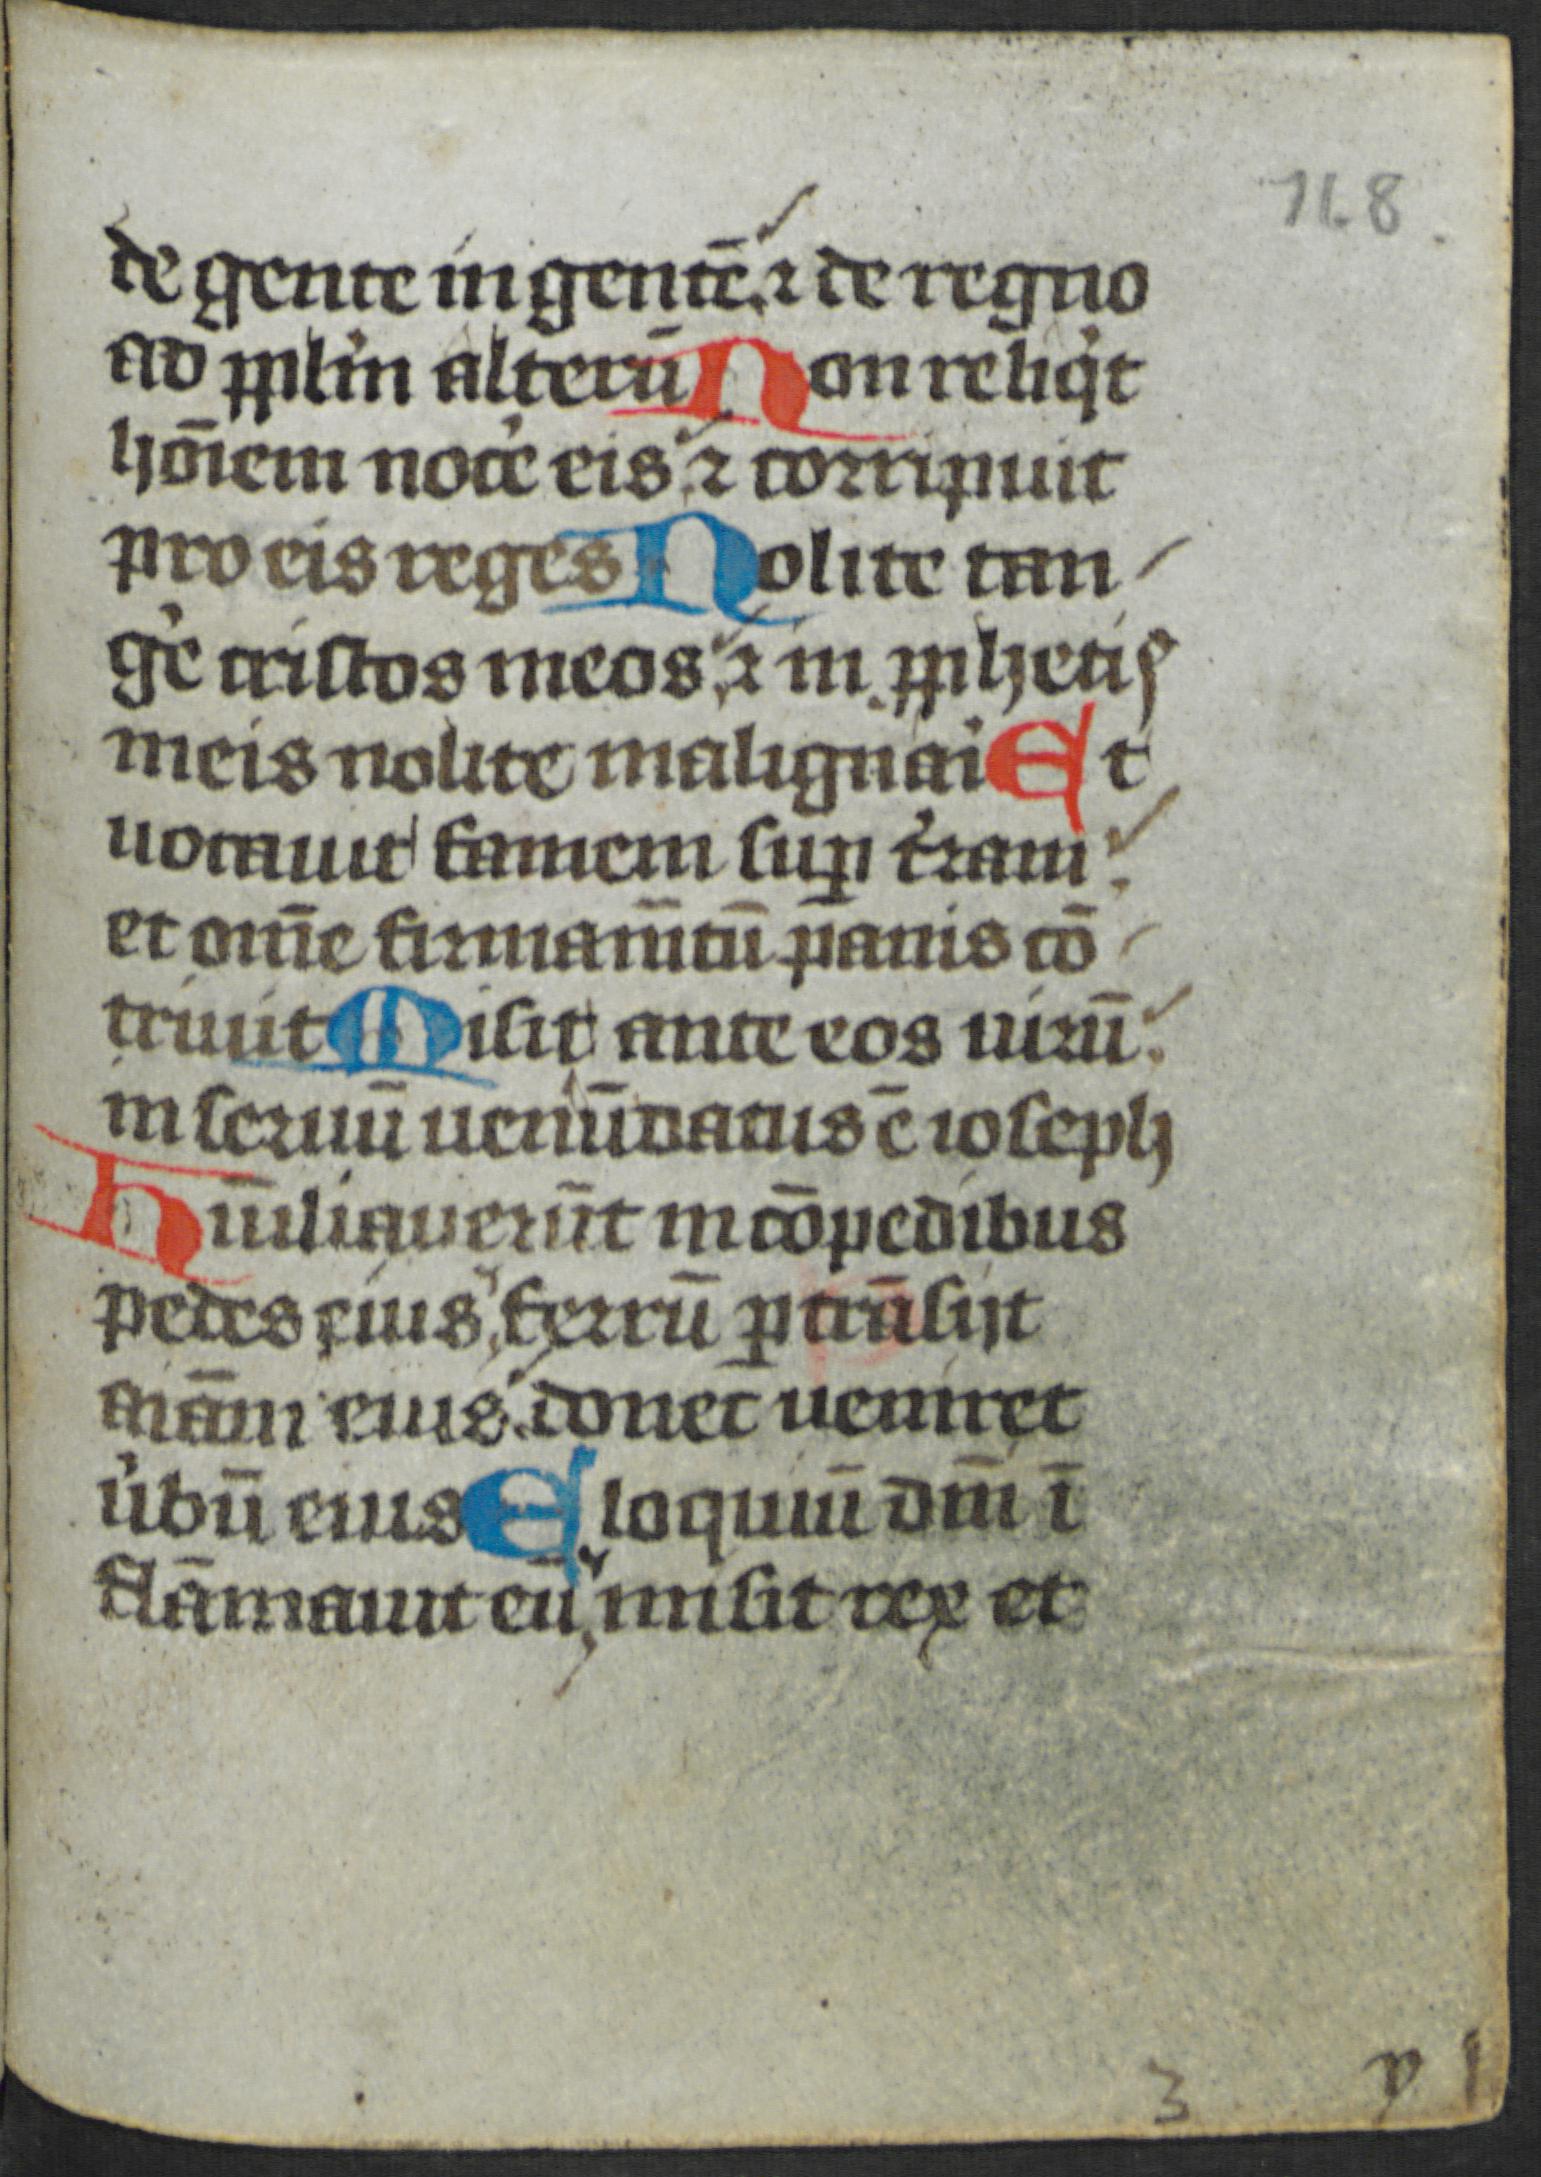 118
de gente in gentē ⁊ de regno
ad pplm̄ alterū Non reliq't
hoīem noc'e eis ⁊ corripuit
pro eis reges Nolite tan
g'e cristos meos ⁊ in pphetis
meis nolite malignai Et
uocauit famem sup t'ram
et om̄e firmam̄tū panis cō
triuit Misit ante eos uirū
in seruū uenūdatus ē ioseph
Hūiliauerūt in cōpedibus
pedes eius ferrū ptrāsijt
aīam eius donec ueniret
u'bū eius Eloquiū dn̄i ī
flāmauit eū misit rex et
3